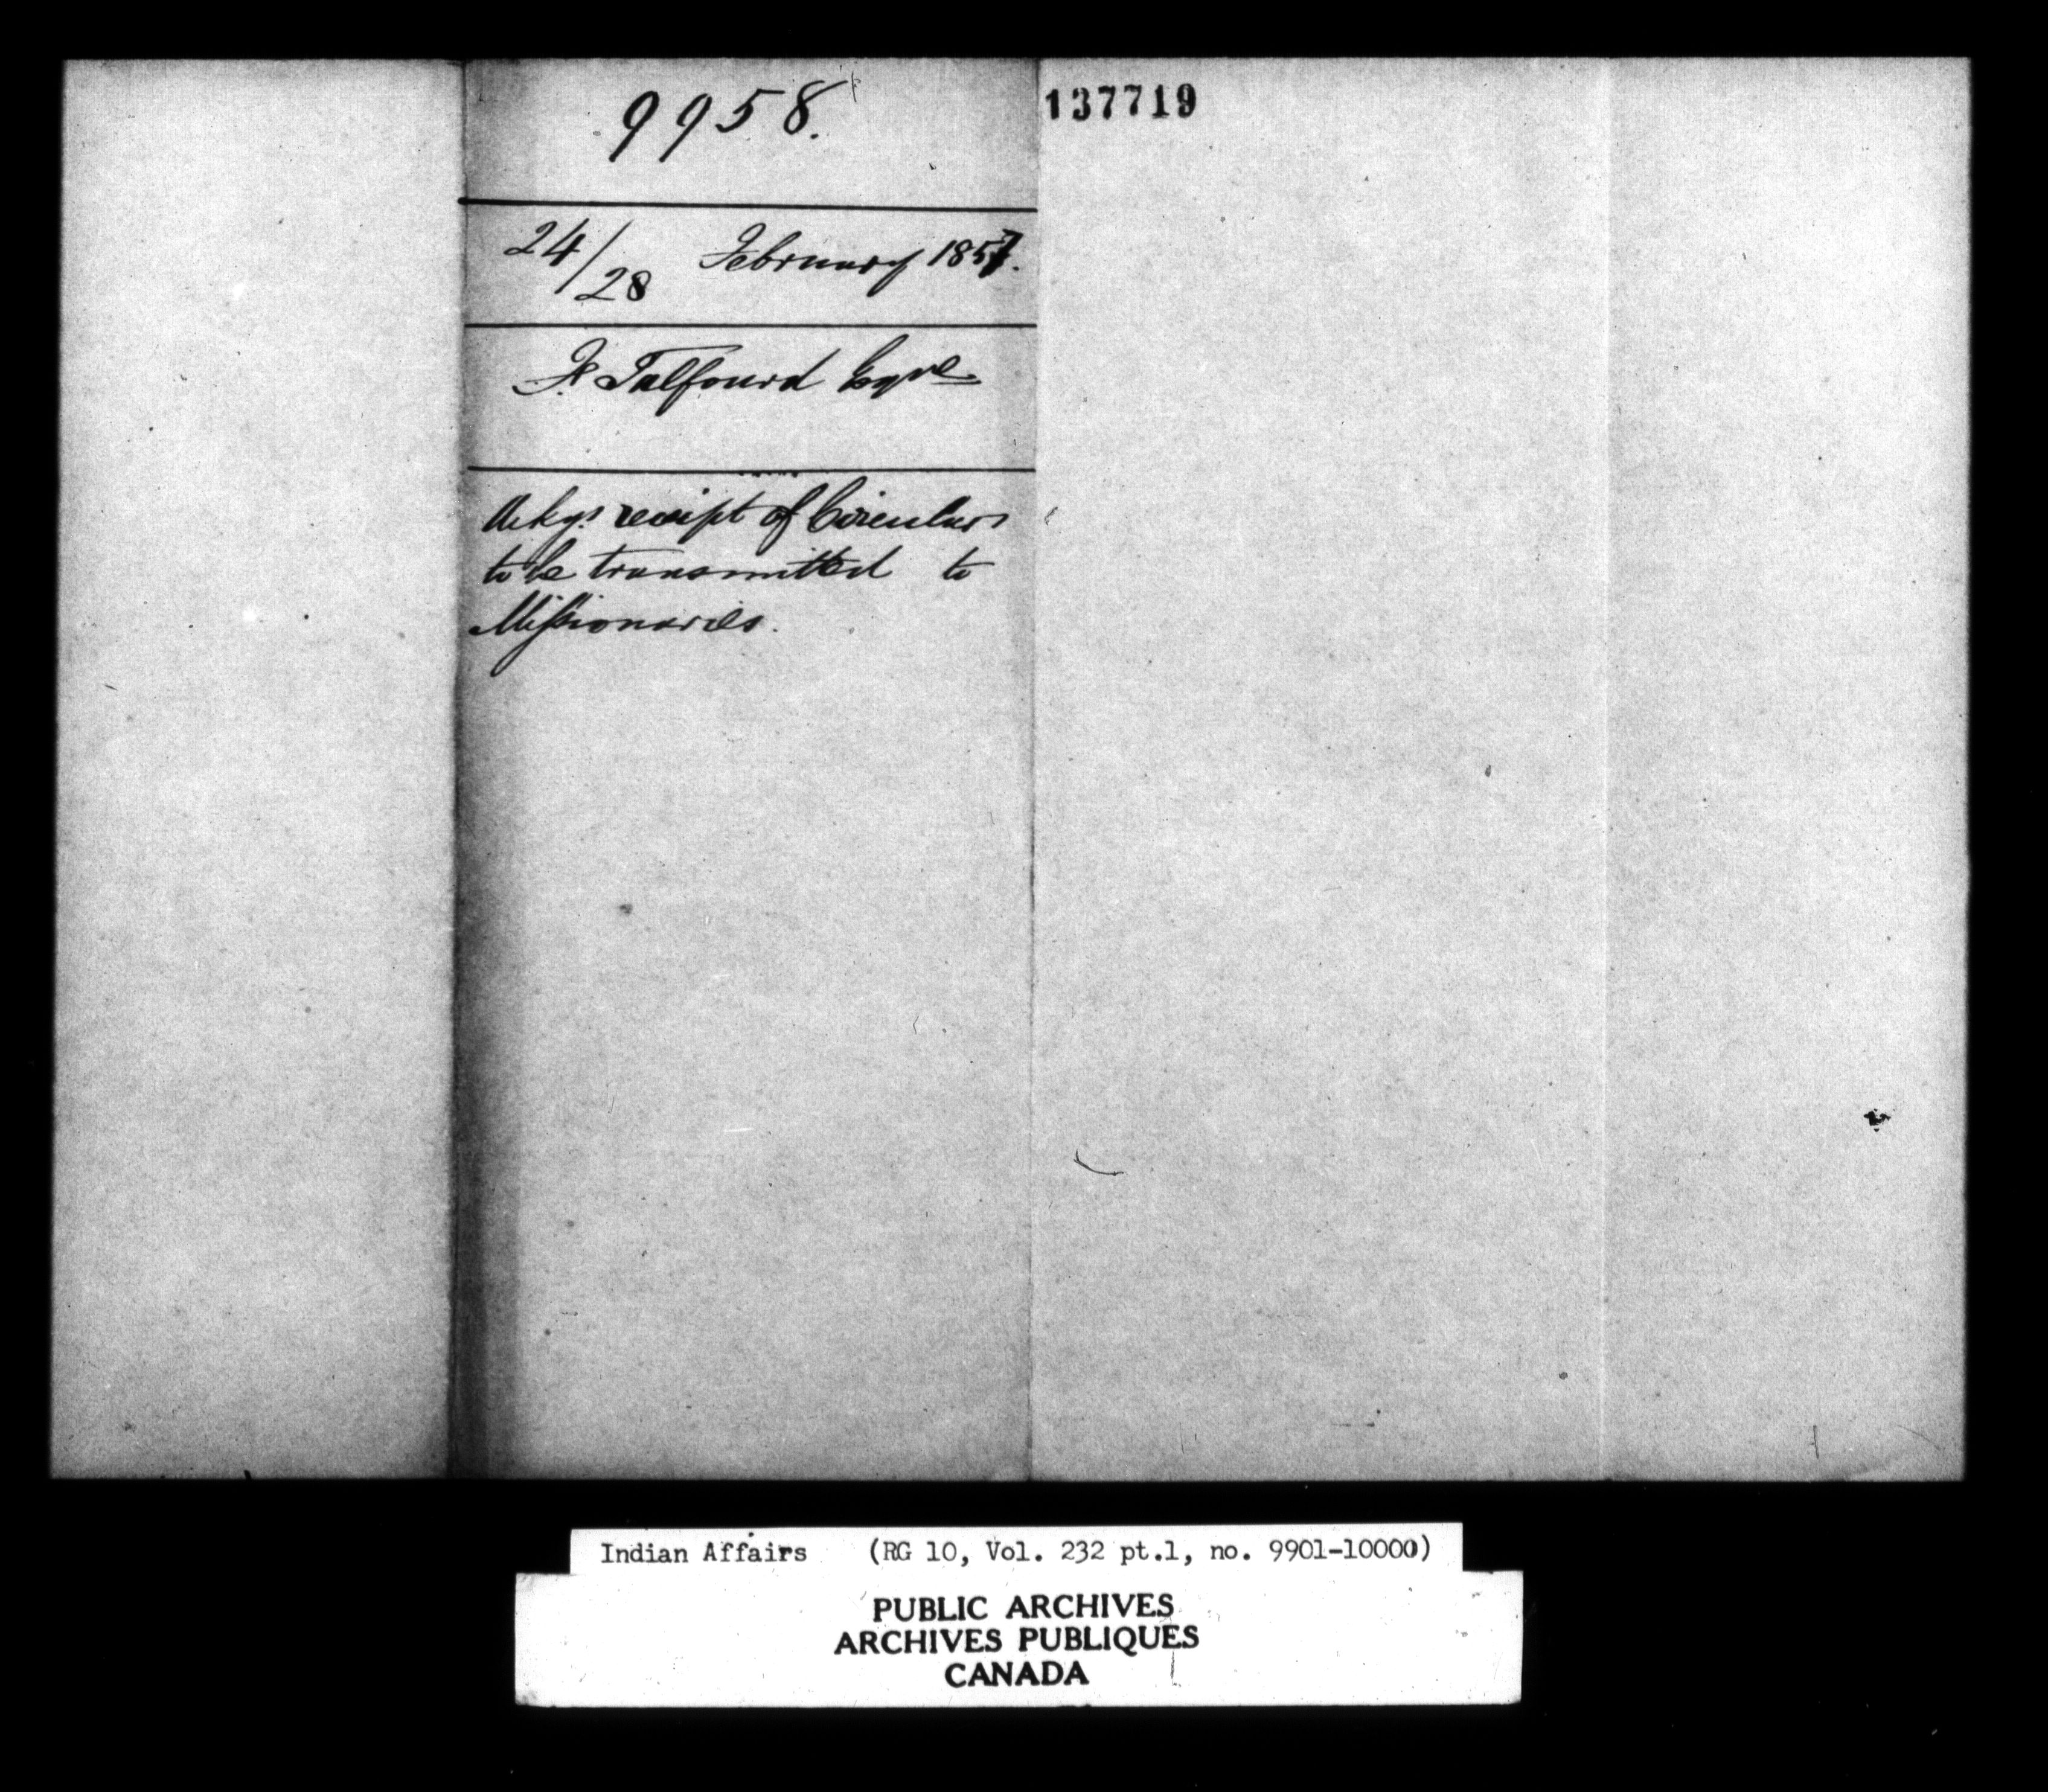 9958.
137719
24/28 February 1857.
F. Talfourd Esqre
Ackgs receipt of Circulars
to be transmitted to
Missionaries.
Indian Affairs (RG 10, Vol. 232 pt.1, no. 9901-10000)
PUBLIC ARCHIVES
ARCHIVES PUBLIQUES
CANADA